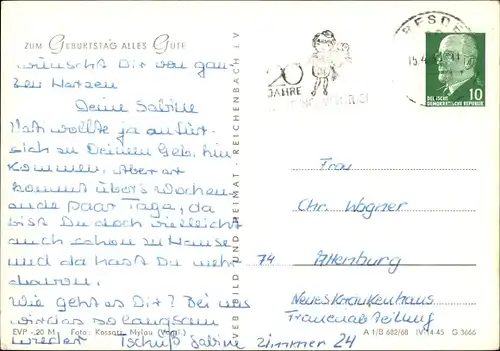 ZUM GEBURTSTAG ALLES GUTE
wünscht Dir von gan-
zen Herzen
Deine Sabine
Mati wollte ja an für
sich zu Deinem Geb. hin
kommen. Aber er
kommt übers Wochen
ende paar Tage, da
bist Du doch vielleicht
auch schon zu Hause
und da hast Du mehr
davon.
Wie geht es Dir? Bei uns
wird es so langsam
wieder Tschüß Sabine
EVP -.20 M Foto: Kossatz, Mylau (Vogtl.)
VEB BILD UND HEIMAT · REICHENBACH i. V
20
JAHRE
DRESDEN
15.4.
DEUTSCHE
DEMOKRATISCHE REPUBLIK
10
Frau
Chr. Wagner
74 Altenburg
Neues Krankenhaus
Frauenabteilung
Zimmer 24
A 1/B 682/68 IV-14-45 G 3666